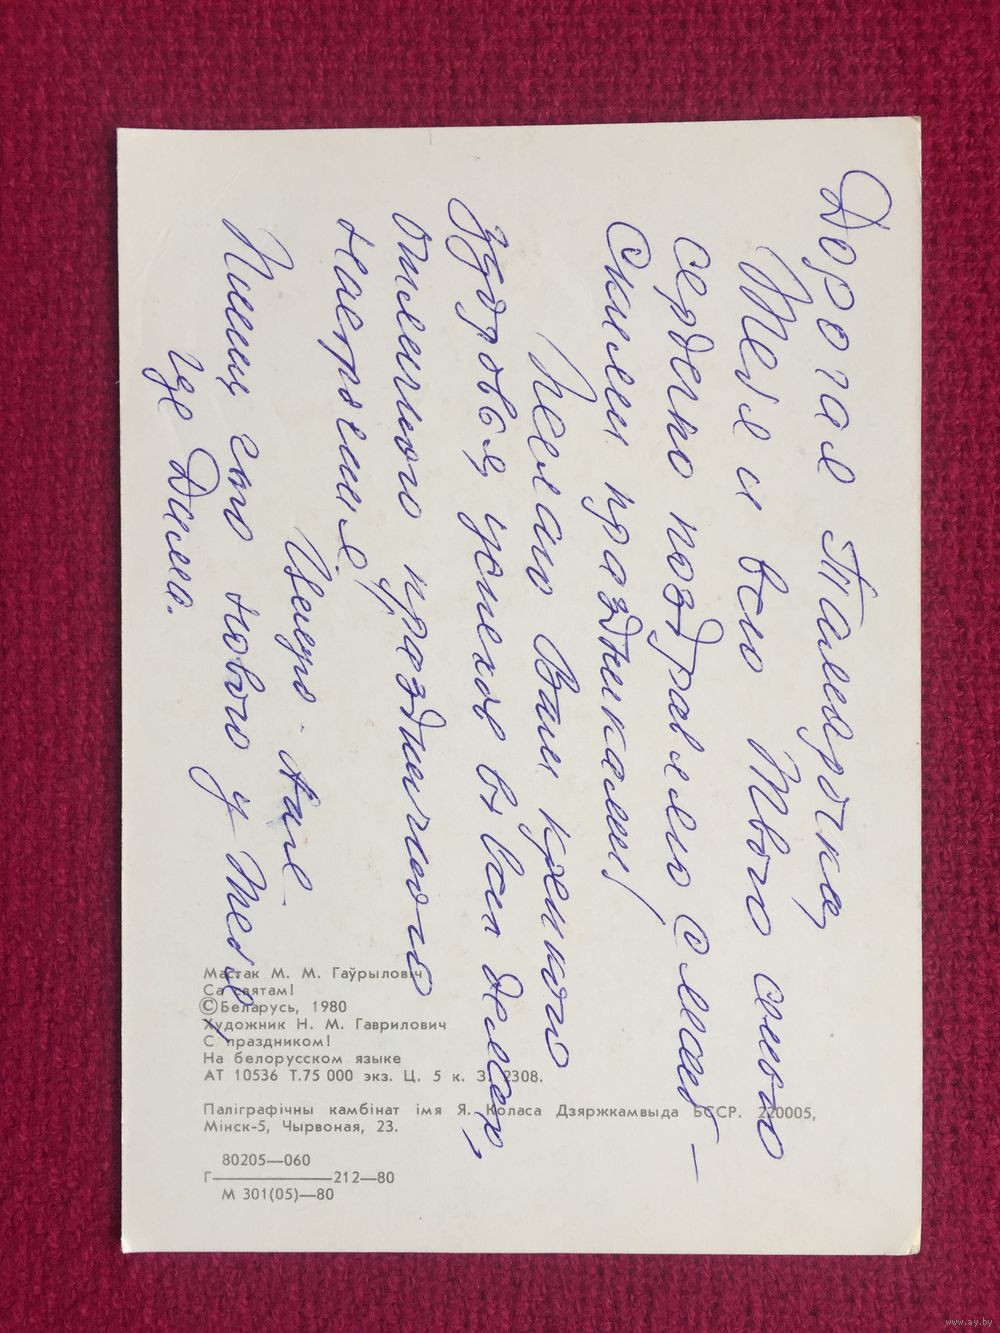 Дорогая Тамарочка,
Тебя и всю Твою семью
сердечно поздравляю с май-
скими праздниками!
Желаю Вам крепкого
здоровья, успехов в вах делах,
отличного праздничного
настроения.
Целую. Аня
Пиши, что нового у Тебя,
где Дима.
Мастак М. М. Гаўрыловіч
Са святам!
© Беларусь, 1980
Художник Н. М. Гаврилович
С праздником!
На белорусском языке
АТ 10536 Т.75 000 экз. Ц. 5 к. З. 2308.
Паліграфічны камбінат імя Я. Коласа Дзяржкамвыда БССР. 220005,
Мінск-5, Чырвоная, 23.
80205—060
Г————212—80
М 301(05)—80
www.ay.by